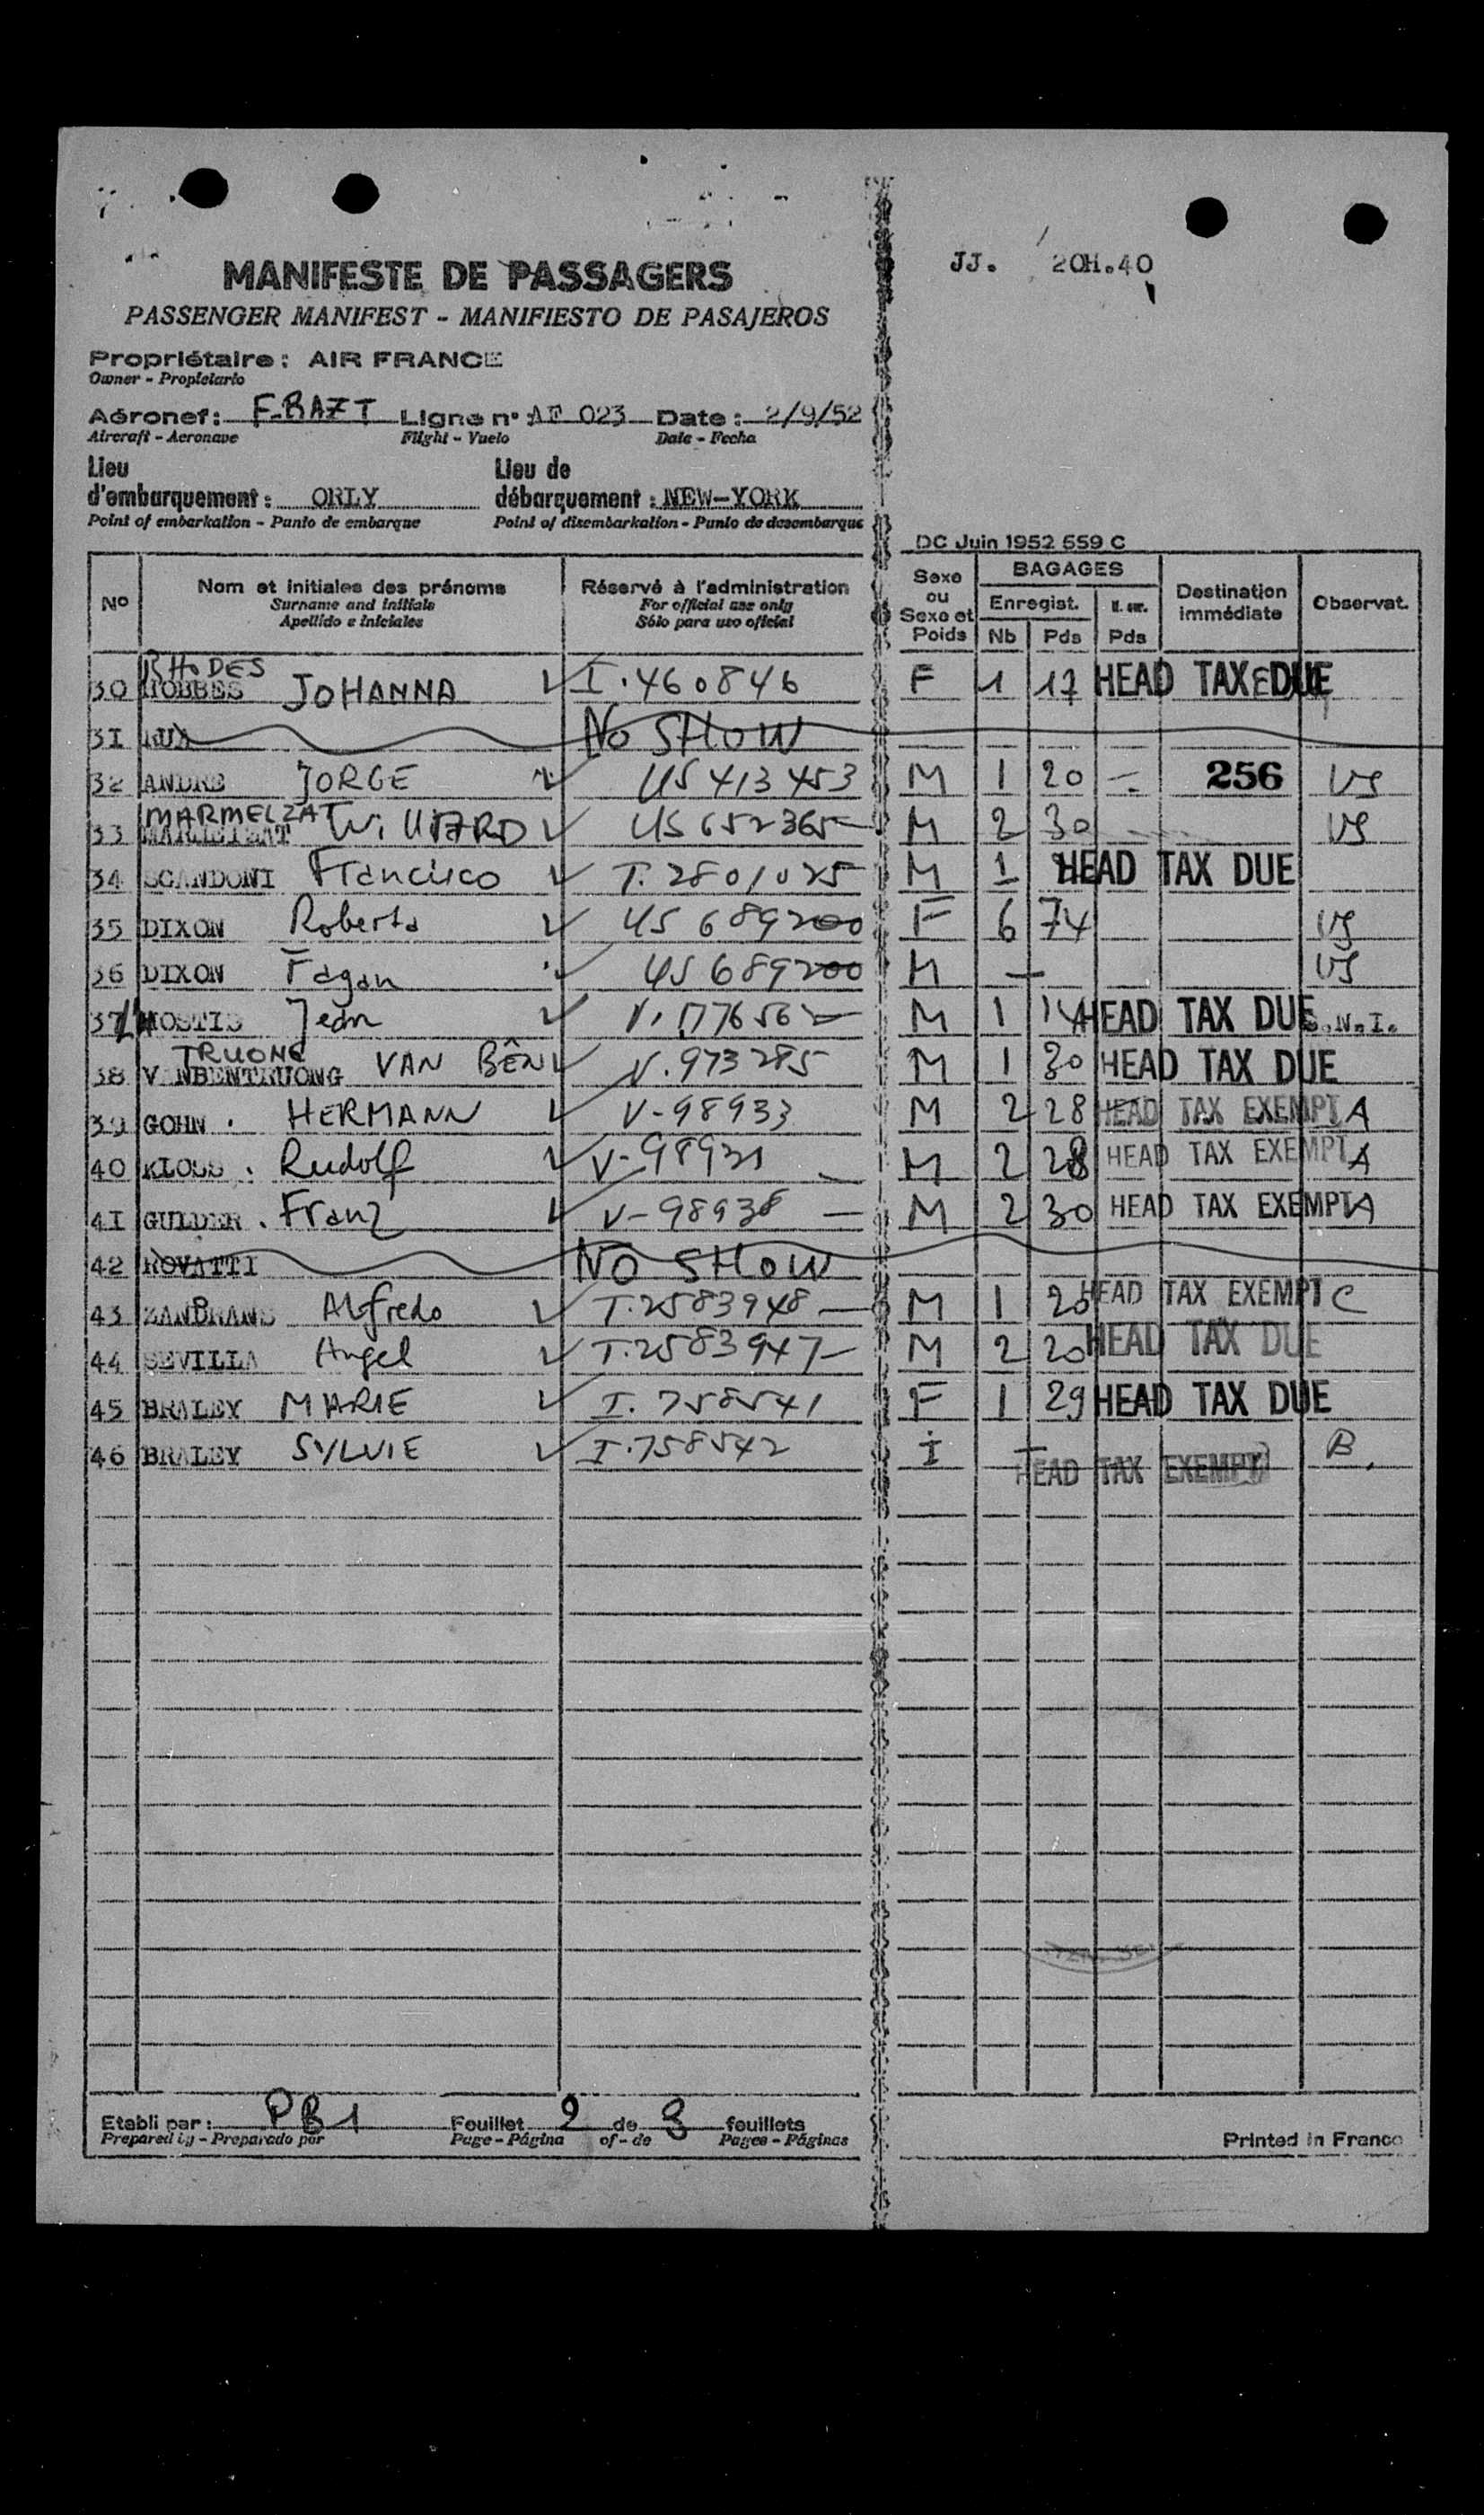 JJ. 20H.40
MANIFESTE DE PASSAGERS
PASSENGER MANIFEST - MANIFIESTO DE PASAJEROS
Propriétaire : AIR FRANCE
Owner - Propietario
Aéronef : F.BAZT Ligne n° AF 023 Date : 2/9/52
Aircraft - Aeronave Flight - Vuelo Date - Fecha
Lieu d'embarquement : ORLY Lieu de débarquement : NEW-YORK
Point of embarkation - Punto de embarque Point of disembarkation - Punto de desembarque
DC Juin 1952 559 C
No Nom et initiales des prénoms Réservé à l'administration Sexe ou Sexe et Poids BAGAGES Destination immédiate Observat.
Surname and initials For official use only Enregist.
Apellido e iniciales Sólo para uso oficial Nb Pds Pds
RHODES
30 HOBBES JOHANNA I.460846 F 1 17 HEAD TAX DUE
31 No SHOW
32 ANDRE JORGE US 413453 M 1 20 - 256 US
MARMELZAT
33 WILLIARD US 652365 M 2 30 US
34 SCANDONI Francisco T.2801025 M 1 HEAD TAX DUE
35 DIXON Roberta US 689200 F 6 74 US
36 DIXON Fagan US 689200 M - US
37 L'HOSTIS Jean M 1 14 HEAD TAX DUE S.N.I.
TRUONG
38 VANBENTRUONG VAN BÊN V.973285 M 1 30 HEAD TAX DUE
39 GOHN. HERMANN V-98933 M 2 28 HEAD TAX EXEMPT A
40 KLOSS. Rudolf V-98921 M 2 28 HEAD TAX EXEMPT A
41 GULDER. Franz V-98938 M 2 30 HEAD TAX EXEMPT A
42 ROVATTI NO SHOW
43 Alfredo T.2583948 M 1 20 HEAD TAX EXEMPT C
44 SEVILLA Angel T.2583947 M 2 20 HEAD TAX DUE
45 BRALEY MARIE I.758541 F 1 29 HEAD TAX DUE
46 BRALEY SYLVIE I.758542 I - HEAD TAX EXEMPT B.
Etabli par : PB1 Feuillet 2 de 3 feuillets
Prepared by - Preparado por Page - Página of - de Pages - Páginas
Printed in France